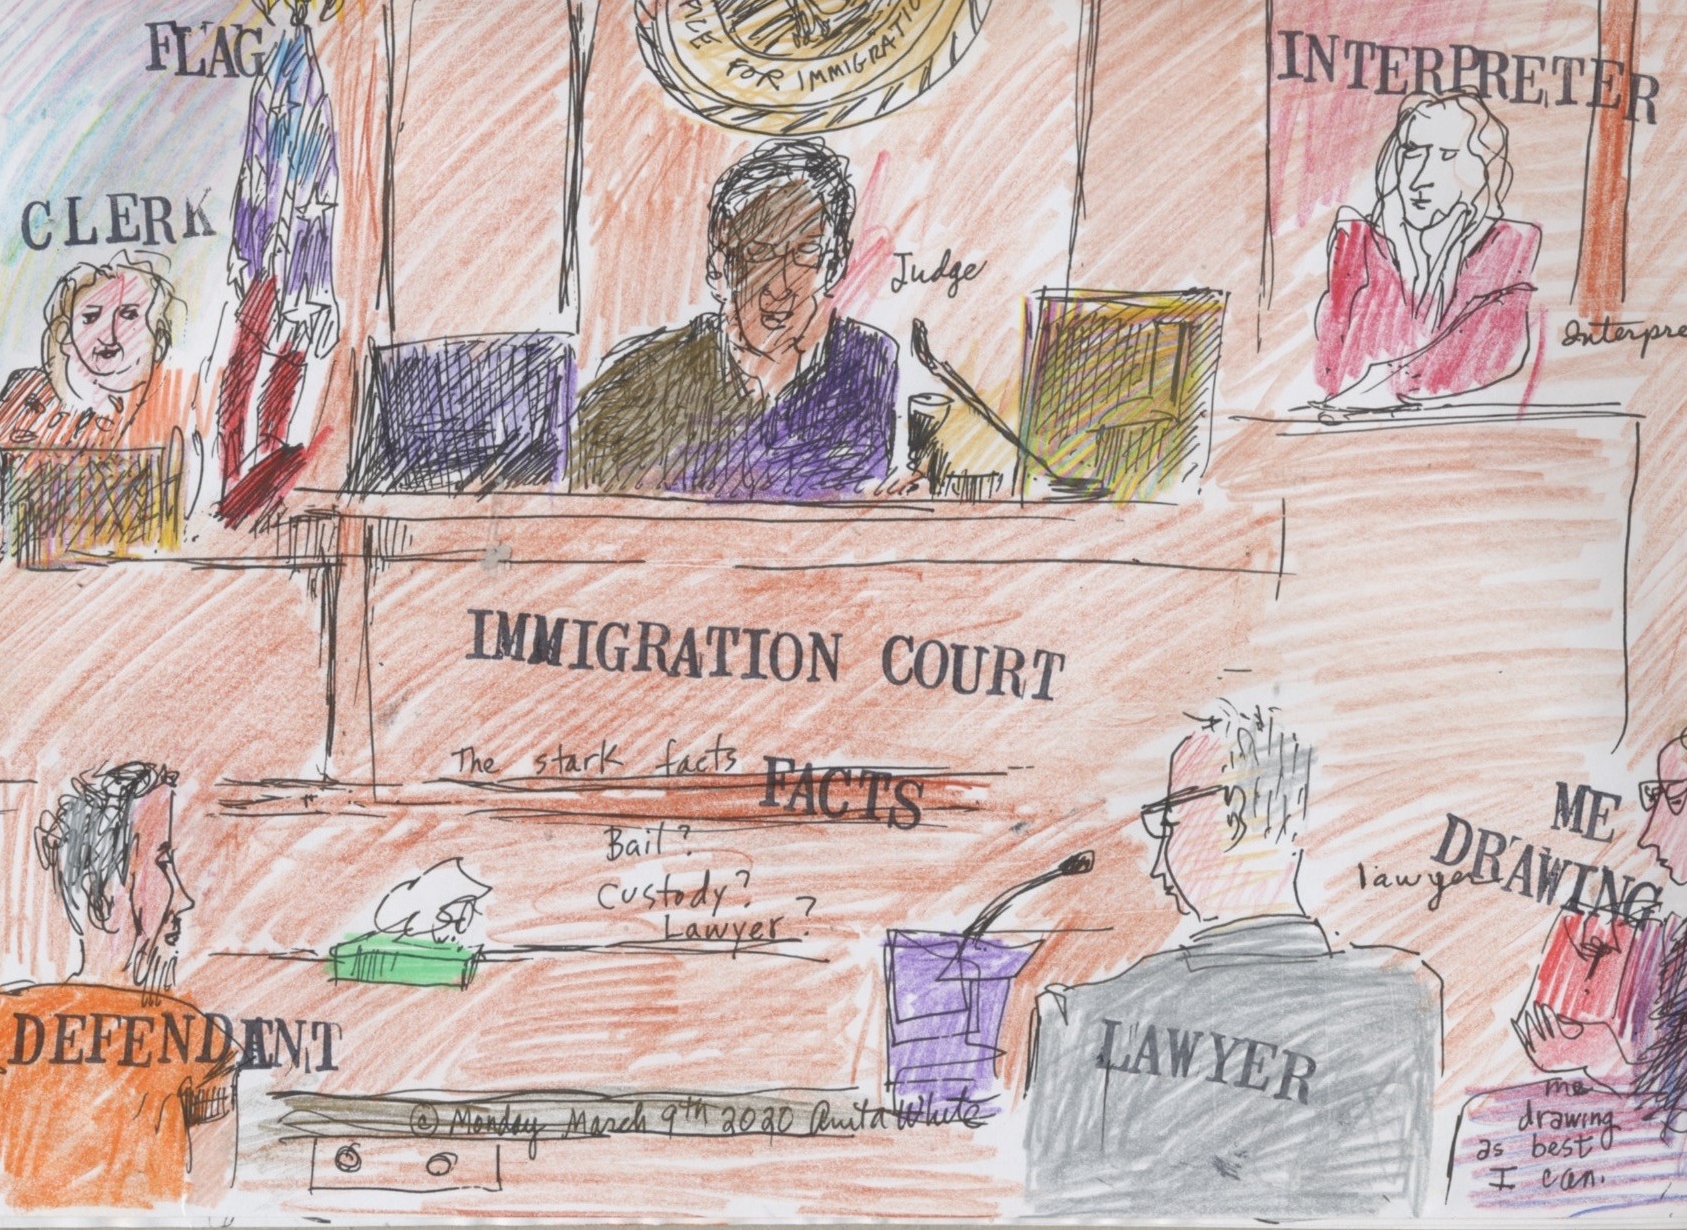 FLAG
FOR IMMIGRATIO
INTERPRETER
CLERK
Judge
Interpre
IMMIGRATION COURT
The stark facts
FACTS
Bail?
Custody?
Lawyer?
ME
DRAWING
lawyer
DEFENDANT
LAWYER
© Monday March 9th 2020 Anita White
me
drawing
as best
I can.